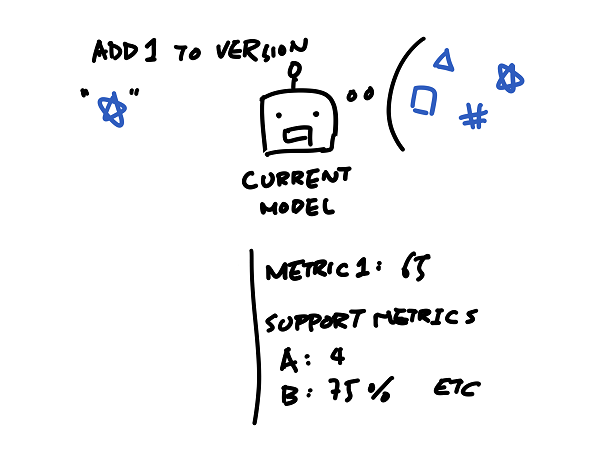 ADD 1 TO VERSION
" "
CURRENT
MODEL
#
METRIC 1: 65
SUPPORT METRICS
A: 4
B: 75% ETC